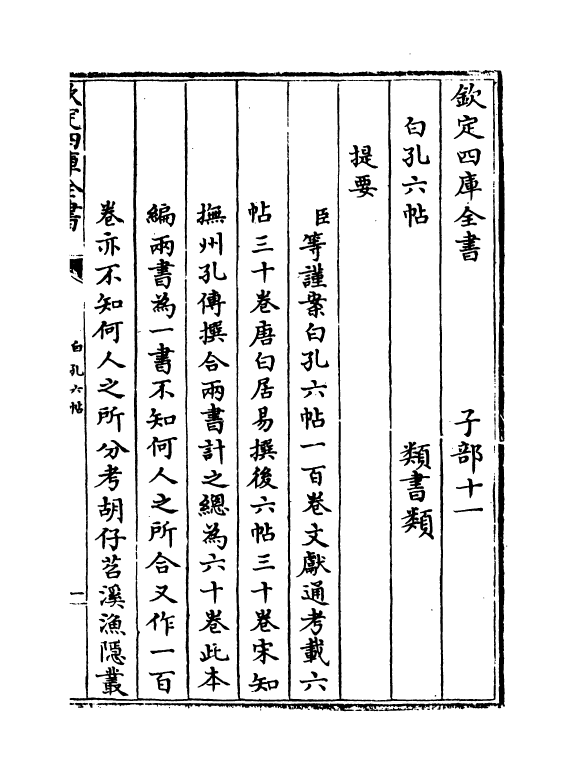 欽定四庫全書 子部十一
白孔六帖 類書類
提要
臣等謹案白孔六帖一百卷文獻通考載六
帖三十卷唐白居易撰後六帖三十卷宋知
撫州孔傳撰合兩書計之總為六十卷此本
編兩書為一書不知何人之所合又作一百
卷亦不知何人之所分考胡仔苕溪漁隱叢
欽定四庫全書 白孔六帖 一